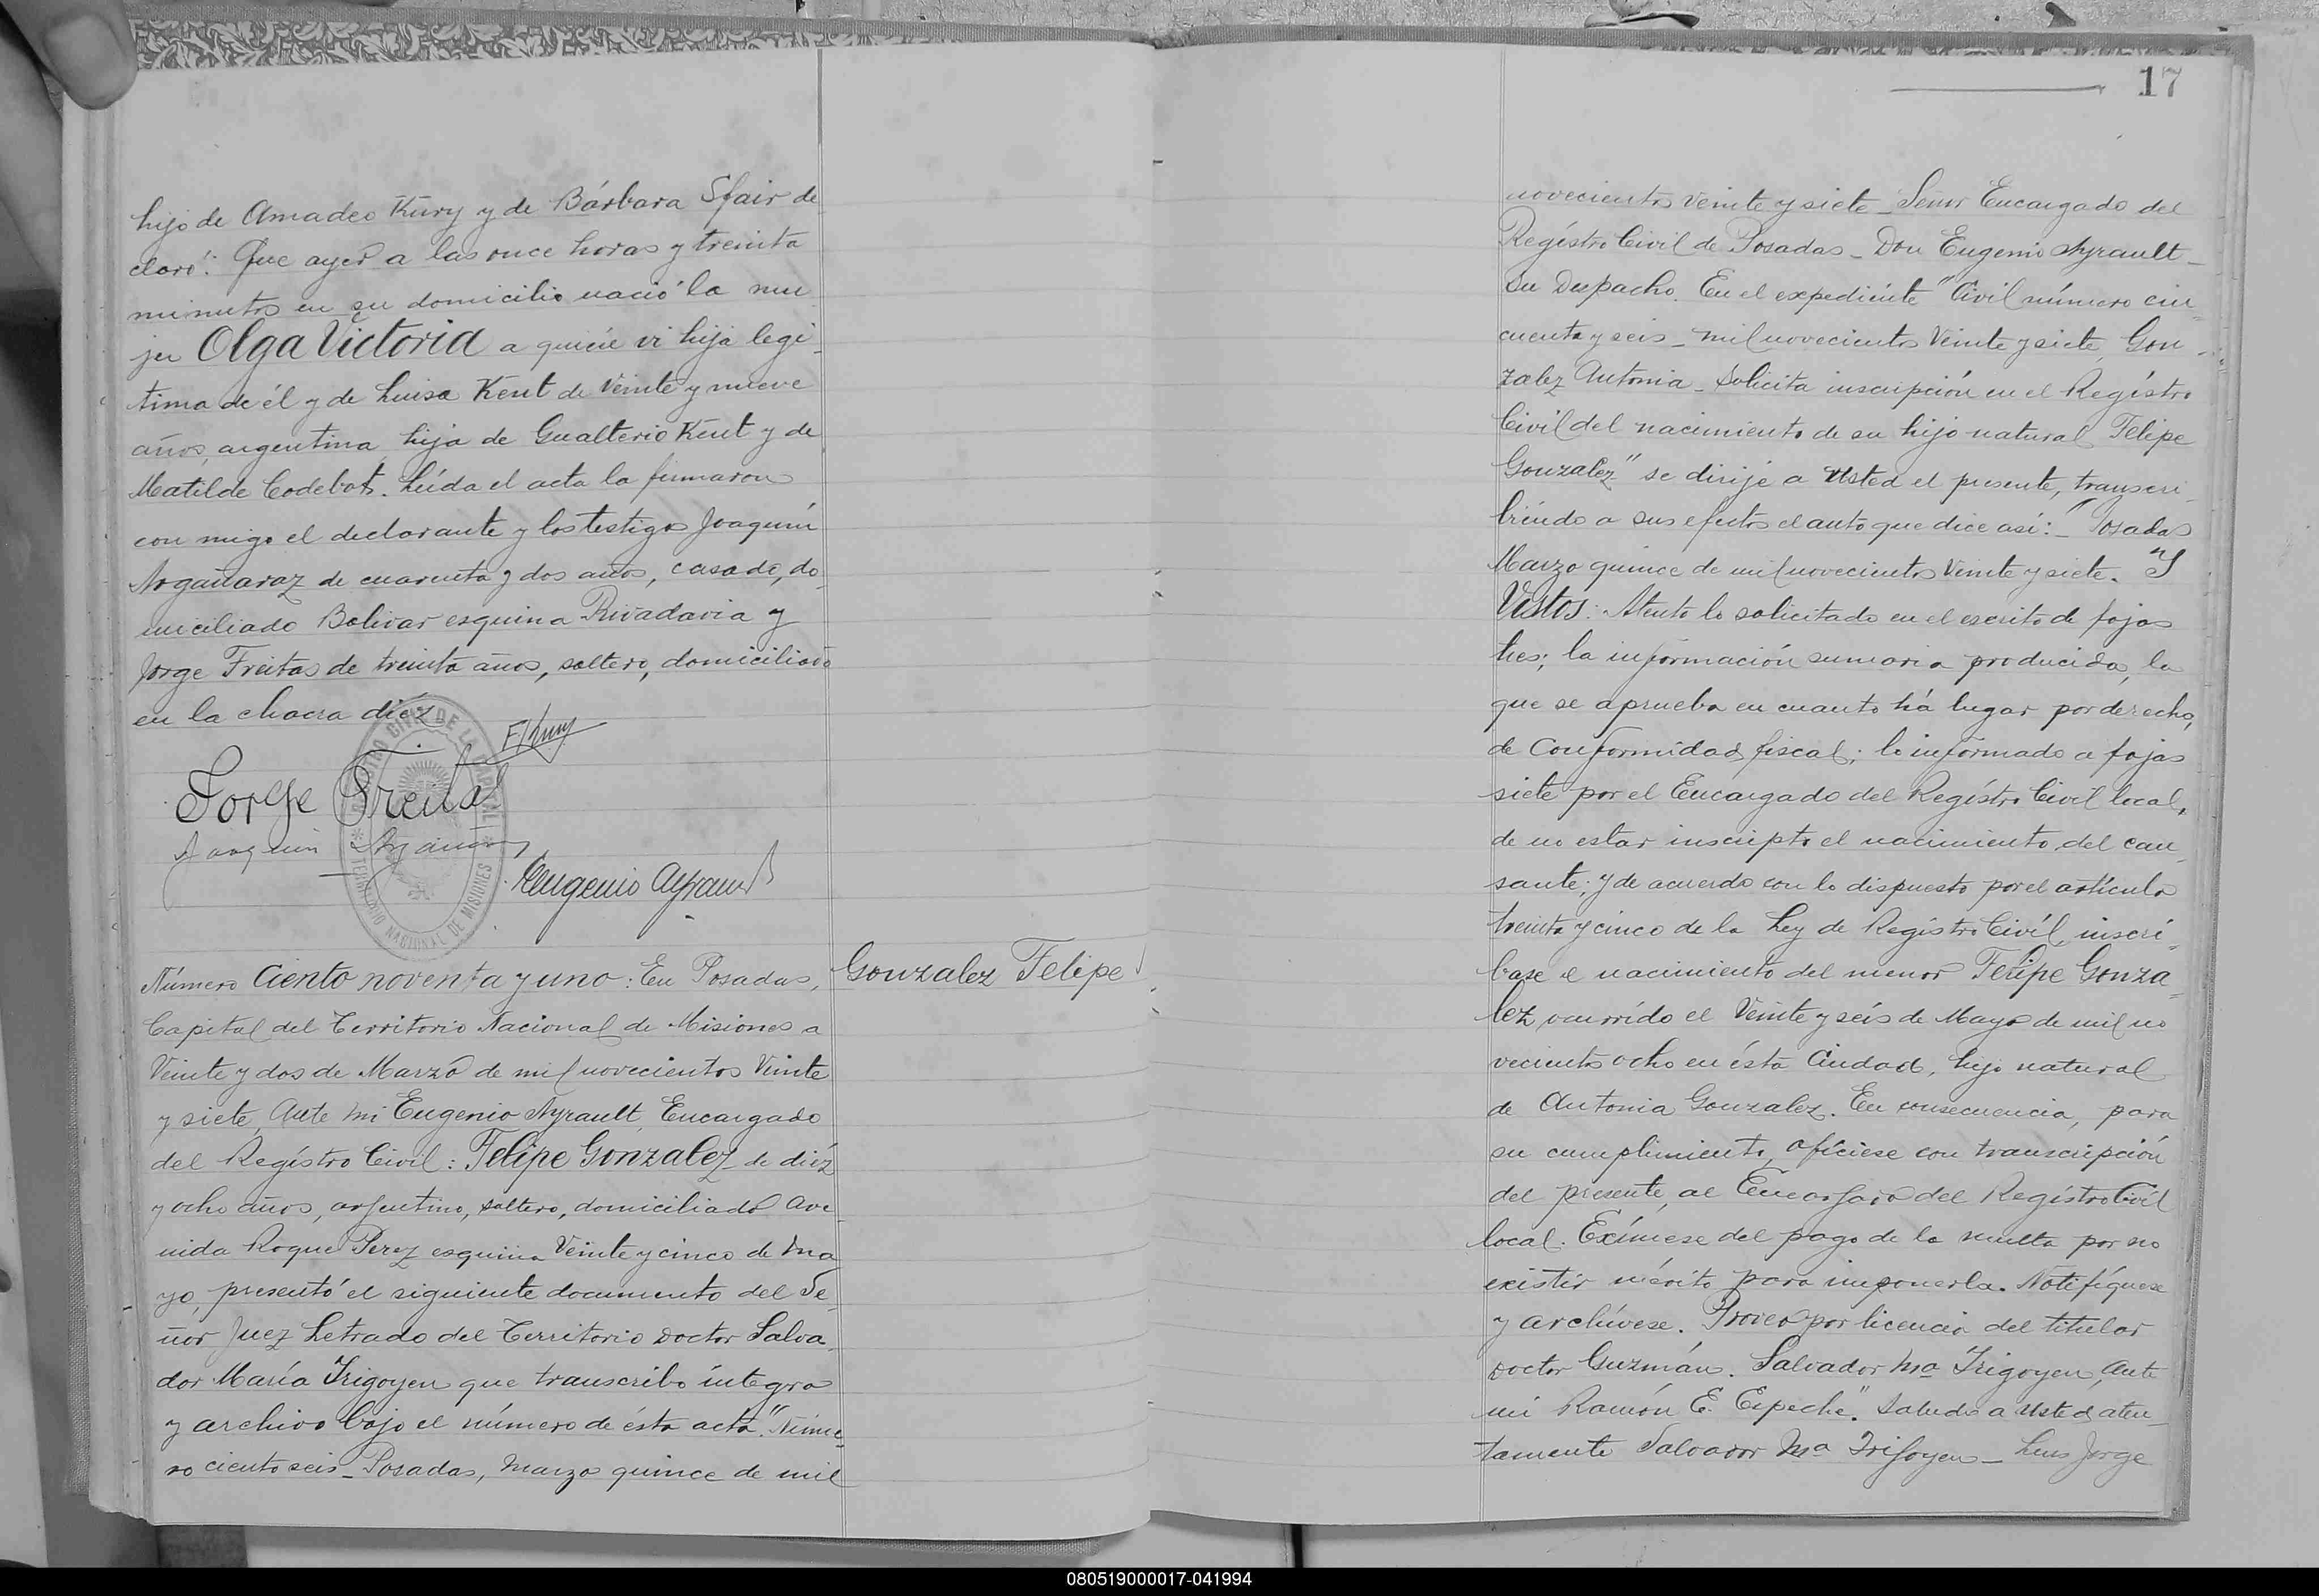 hijo de Amadeo Kury y de Bárbara Sfair de
claró: Que ayer a las once horas y treinta
minutos en su domicilio nació la mu
jer Olga Victoria a quien vi hija legí
tima de él y de Luisa Kent de Veinte y nueve
años, argentina, hija de Gualterio Kent y de
Matilde Codebot. Leída el acta la firmaron
con migo el declarante y los testigos Joaquín
Argañaraz de cuarenta y dos años, casado, do
miciliado Bolivar esquina Rivadavia y
Jorge Freitas de treinta años, soltero, domiciliado
en la chacra diez
F Kury
Jorge Freitas
Joaquin Argañaraz
Eugenio Ayrault
REGISTRO CIVIL DE LA CAPITAL
TERRITORIO NACIONAL DE MISIONES
Número Ciento noventa y uno: En Posadas,
Gonzalez Felipe
Capital del Territorio Nacional de Misiones a
Veinte y dos de Marzo de mil novecientos Veinte
y siete, Ante mi Eugenio Ayrault, Encargado
del Regístro Civil: Felipe Gonzalez de diéz
y ocho años, argentino, soltero, domiciliado Ave
nida Roque Perez esquina Veinte y cinco de Ma
yo, presentó el siguiente documento del Se
ñor Juez Letrado del Territorio Doctor Salva
dor María Irigoyen que transcribo íntegro
y archivo bajo el número de ésta acta. "Núme
ro ciento seis_ Posadas, Marzo quince de mil
17
novecientos Veinte y siete_ Señor Encargado del
Regístro Civil de Posadas_ Don Eugenio Ayrault_
Su Despacho. En el expediente "Civil número cin
cuenta y seis_ mil novecientos Veinte y siete, Gon
zalez Antonia_ Solicita inscripción en el Regístro
Civil del nacimiento de su hijo natural Felipe
Gonzalez" se dirije a Usted el presente, transcri
biendo a sus efectos el auto que dice así:_ "Posadas
Marzo quince de mil novecientos Veinte y siete. Y
Vistos: Atento lo solicitado en el escrito de fojas
tres; la información sumaria producida, la
que se aprueba en cuanto há lugar por derecho,
de Conformidad fiscal; lo informado a fojas
siete por el Encargado del Regístro Civil local,
de no estar inscripto el nacimiento del cau
sante; y de acuerdo con lo dispuesto por el artículo
treinta y cinco de la Ley de Regístro Civil, inscrí
base el nacimiento del menor Felipe Gonza
lez ocurrído el Veinte y seis de Mayo de mil no
vecientos ocho en ésta Ciudad, hijo natural
de Antonia Gonzalez. En consecuencia, para
su cumplimiento, ofíciese con transcripción
del presente, al Encargado del Regístro Civil
local. Exímese del pago de la multa por no
existir mérito para imponerla. Notifíquese
y archívese. Proveo por licencia del titular
Doctor Guzmán. Salvador Ma Irigoyen, Ante
mi Ramón E. Espeche". Saludo a Usted aten
tamente Salvador Ma Irigoyen_ Luis Jorge
080519000017-041994